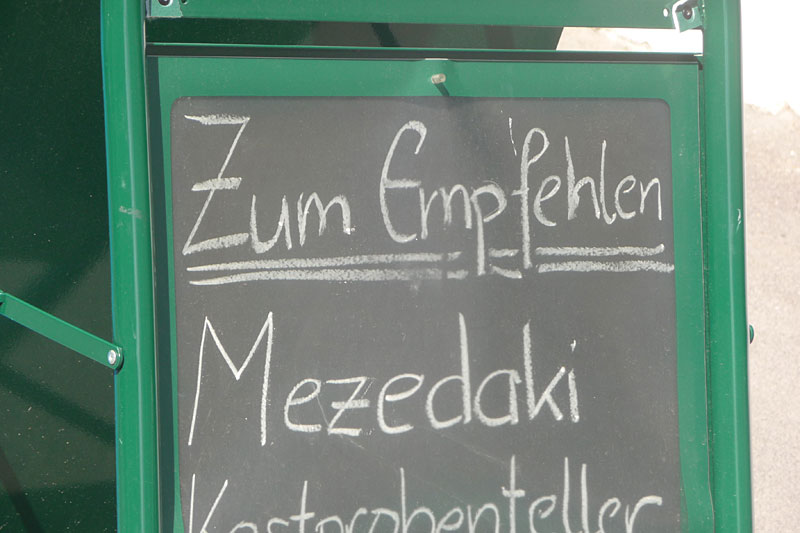 Zum Empfehlen
Mezedaki
Kostprobenteller